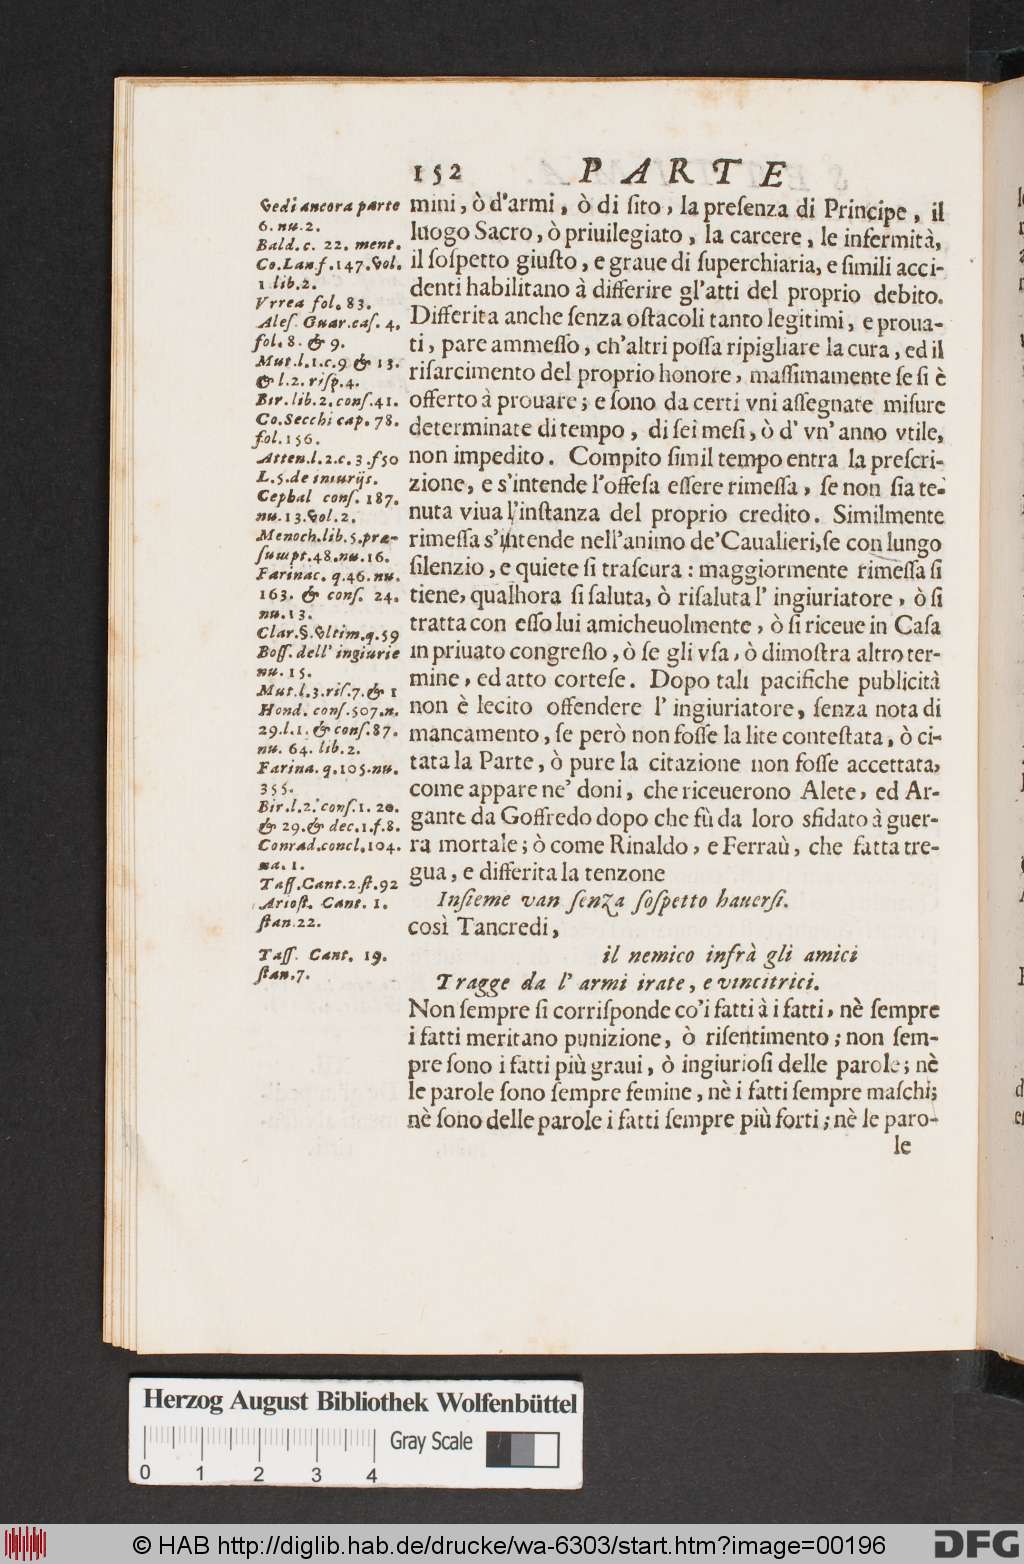 152 PARTE
Vedi ancora parte
6. nu. 2.
Bald. c. 22. ment.
Co. Lanf. 147. Vol.
1 lib. 2.
Vrrea fol. 83.
Ales. Guar. cas. 4.
fol. 8. & 9.
Mut. l. 1. c. 9 & 13.
& l. 2. risp. 4.
Bir. lib. 2. cons. 41.
Co. Secchi cap. 78.
fol. 156.
Atten. l. 2. c. 3. f 50
L. 5. de iniurijs.
Cephal cons. 187.
nu. 13. Vol. 2.
Menoch. lib. 5. præ-
sumpt. 48. nu. 16.
Farinac. q. 46. nu.
163. & cons. 24.
nu. 13.
Clar. §. Vltim. q. 59
Boss. dell' ingiurie
nu. 15.
Mut. l. 3. ris. 7. & 1
Hond. cons. 507. n.
29. l. 1. & cons. 87.
nu. 64. lib. 2.
Farina. q. 105. nu.
355.
Bir. l. 2. cons. 1. 20.
& 29. & dec. 1. f. 8.
Conrad. concl. 104.
na. 1.
Tass. Cant. 2. st. 92
Ariost. Cant. 1.
stan. 22.
Tass. Cant. 19.
stan. 7.
mini, ò d'armi, ò di ſito, la preſenza di Principe, il
luogo Sacro, ò priuilegiato, la carcere, le infermità,
il ſoſpetto giuſto, e graue di ſuperchiaria, e ſimili acci-
denti habilitano à differire gl'atti del proprio debito.
Differita anche ſenza oſtacoli tanto legitimi, e proua-
ti, pare ammeſſo, ch'altri poſſa ripigliare la cura, ed il
riſarcimento del proprio honore, maſſimamente ſe ſi è
offerto à prouare; e ſono da certi vni aſſegnate miſure
determinate di tempo, di ſei meſi, ò d' vn' anno vtile,
non impedito. Compito ſimil tempo entra la preſcri-
zione, e s'intende l'offeſa eſſere rimeſſa, ſe non ſia te-
nuta viua l'inſtanza del proprio credito. Similmente
rimeſſa s'intende nell'animo de'Caualieri, ſe con lungo
ſilenzio, e quiete ſi traſcura: maggiormente rimeſſa ſi
tiene, qualhora ſi ſaluta, ò riſaluta l' ingiuriatore, ò ſi
tratta con eſſo lui amicheuolmente, ò ſi riceue in Caſa
in priuato congreſſo, ò ſe gli vſa, ò dimoſtra altro ter-
mine, ed atto corteſe. Dopo tali pacifiche publicità
non è lecito offendere l' ingiuriatore, ſenza nota di
mancamento, ſe però non foſſe la lite conteſtata, ò ci-
tata la Parte, ò pure la citazione non foſſe accettata,
come appare ne' doni, che riceuerono Alete, ed Ar-
gante da Goffredo dopo che fù da loro sfidato à guer-
ra mortale; ò come Rinaldo, e Ferraù, che fatta tre-
gua, e differita la tenzone
Inſieme van ſenza ſoſpetto hauerſi.
così Tancredi,
il nemico infrà gli amici
Tragge da l' armi irate, e vincitrici.
Non ſempre ſi corriſponde co'i fatti à i fatti, nè ſempre
i fatti meritano punizione, ò riſentimento; non ſem-
pre ſono i fatti più graui, ò ingiurioſi delle parole; nè
le parole ſono ſempre femine, nè i fatti ſempre maſchi;
nè ſono delle parole i fatti ſempre più forti; nè le paro-
le
Herzog August Bibliothek Wolfenbüttel
Gray Scale
0 1 2 3 4
© HAB http://diglib.hab.de/drucke/wa-6303/start.htm?image=00196
DFG